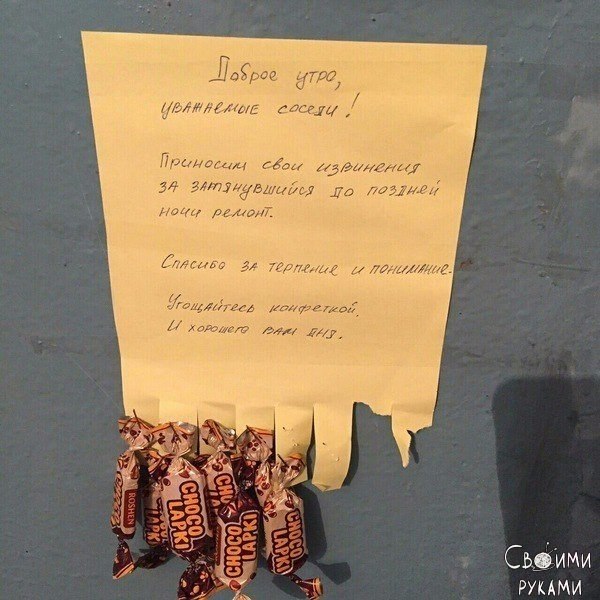 Доброе утро,
уважаемые соседи!
Приносим свои извинения
за затянувшийся до поздней
ночи ремонт.
Спасибо за терпение и понимание.
Угощайтесь конфеткой.
И хорошего вам дня.
ROSHEN
CHOCO
LAPKI
CHOCO
LAPKI
CHOCO
LAPKI
Своими
руками